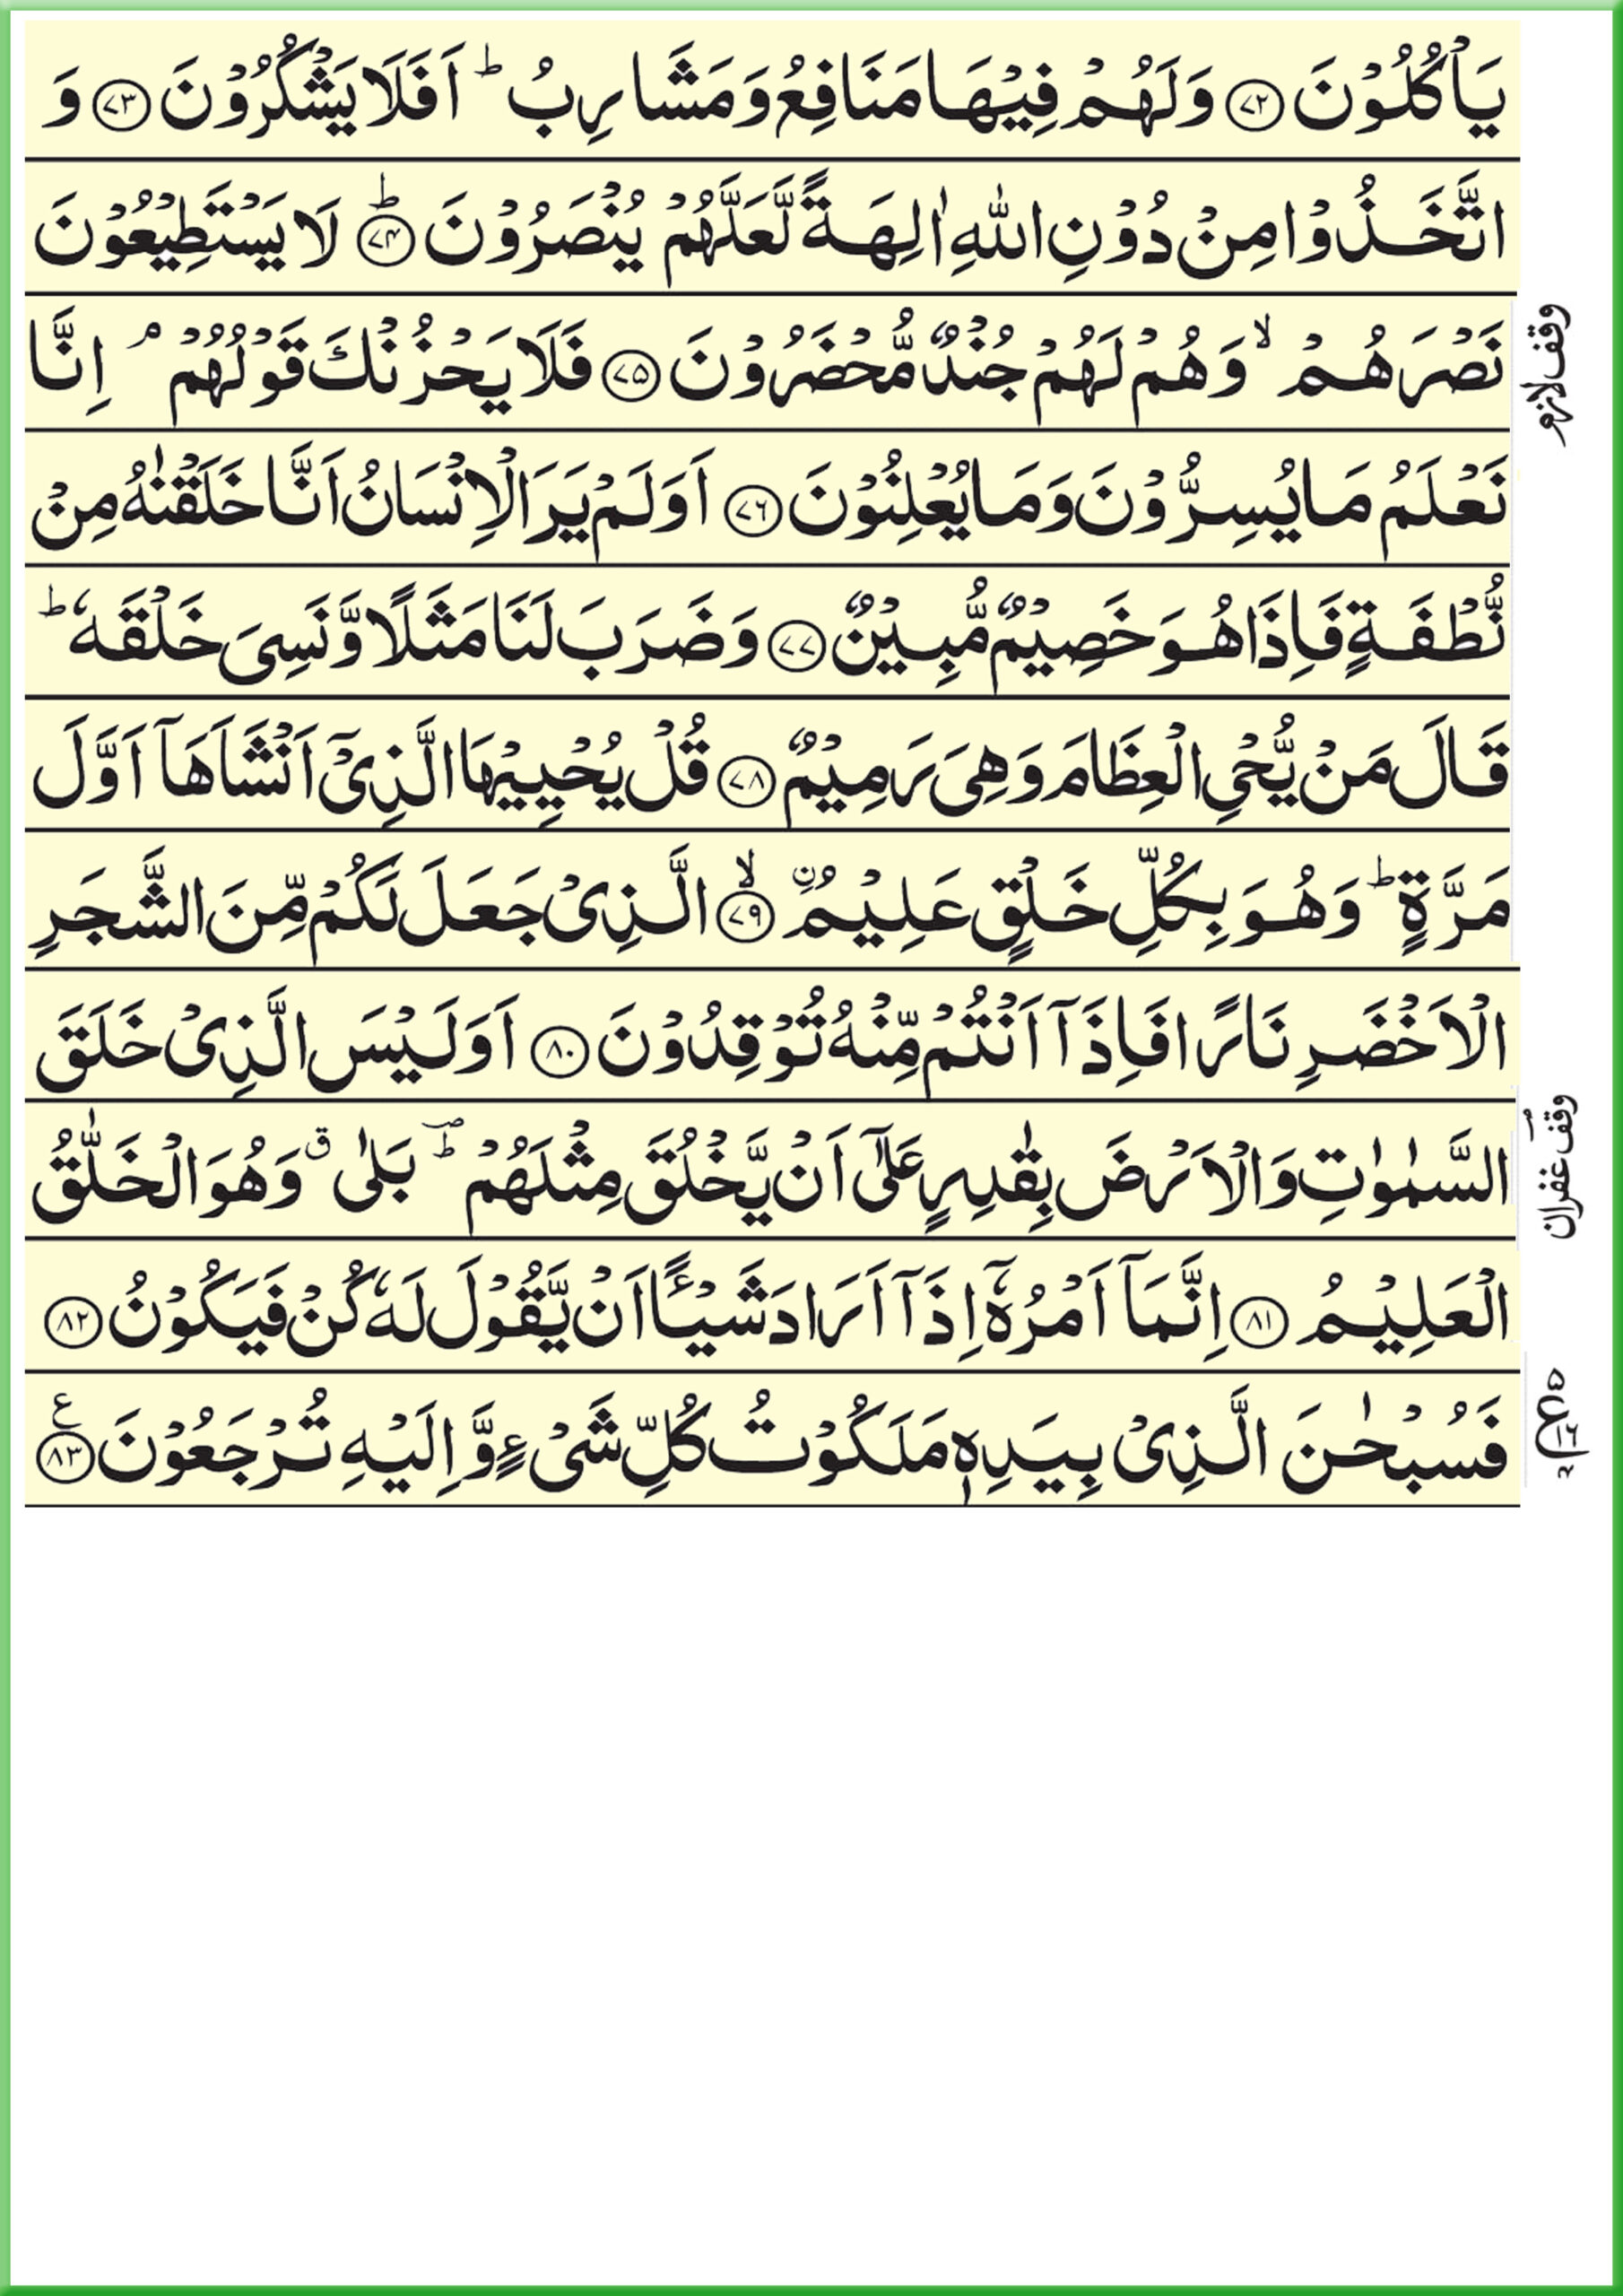 يَاْكُلُوْنَ ﴿۷۲﴾ وَلَهُمْ فِيْهَا مَنَافِعُ وَمَشَارِبُ ؕ اَفَلَا يَشْكُرُوْنَ ﴿۷۳﴾ وَ
اتَّخَذُوْا مِنْ دُوْنِ اللّٰهِ اٰلِهَةً لَّعَلَّهُمْ يُنْصَرُوْنَ ﴿۷۴﴾ؕ لَا يَسْتَطِيْعُوْنَ
نَصْرَهُمْ ۙ وَهُمْ لَهُمْ جُنْدٌ مُّحْضَرُوْنَ ﴿۷۵﴾ فَلَا يَحْزُنْكَ قَوْلُهُمْ ۘ اِنَّا
وقف لازم
نَعْلَمُ مَا يُسِرُّوْنَ وَمَا يُعْلِنُوْنَ ﴿۷۶﴾ اَوَلَمْ يَرَ الْاِنْسَانُ اَنَّا خَلَقْنٰهُ مِنْ
نُّطْفَةٍ فَاِذَا هُوَ خَصِيْمٌ مُّبِيْنٌ ﴿۷۷﴾ وَضَرَبَ لَنَا مَثَلًا وَّنَسِىَ خَلْقَهٗ ؕ
قَالَ مَنْ يُّحْىِ الْعِظَامَ وَهِىَ رَمِيْمٌ ﴿۷۸﴾ قُلْ يُحْيِيْهَا الَّذِىْۤ اَنْشَاَهَاۤ اَوَّلَ
مَرَّةٍ ؕ وَهُوَ بِكُلِّ خَلْقٍ عَلِيْمُ ۨ ﴿۷۹﴾ۙ الَّذِىْ جَعَلَ لَكُمْ مِّنَ الشَّجَرِ
الْاَخْضَرِ نَارًا فَاِذَاۤ اَنْتُمْ مِّنْهُ تُوْقِدُوْنَ ﴿۸۰﴾ اَوَلَيْسَ الَّذِىْ خَلَقَ
السَّمٰوٰتِ وَالْاَرْضَ بِقٰدِرٍ عَلٰٓى اَنْ يَّخْلُقَ مِثْلَهُمْ ؕؔ بَلٰى ۗ وَهُوَ الْخَلّٰقُ
وقف غفران
الْعَلِيْمُ ﴿۸۱﴾ اِنَّمَاۤ اَمْرُهٗۤ اِذَاۤ اَرَادَ شَيْـًٔا اَنْ يَّقُوْلَ لَهٗ كُنْ فَيَكُوْنُ ﴿۸۲﴾
فَسُبْحٰنَ الَّذِىْ بِيَدِهٖ مَلَكُوْتُ كُلِّ شَىْءٍ وَّاِلَيْهِ تُرْجَعُوْنَ ﴿۸۳﴾ ع